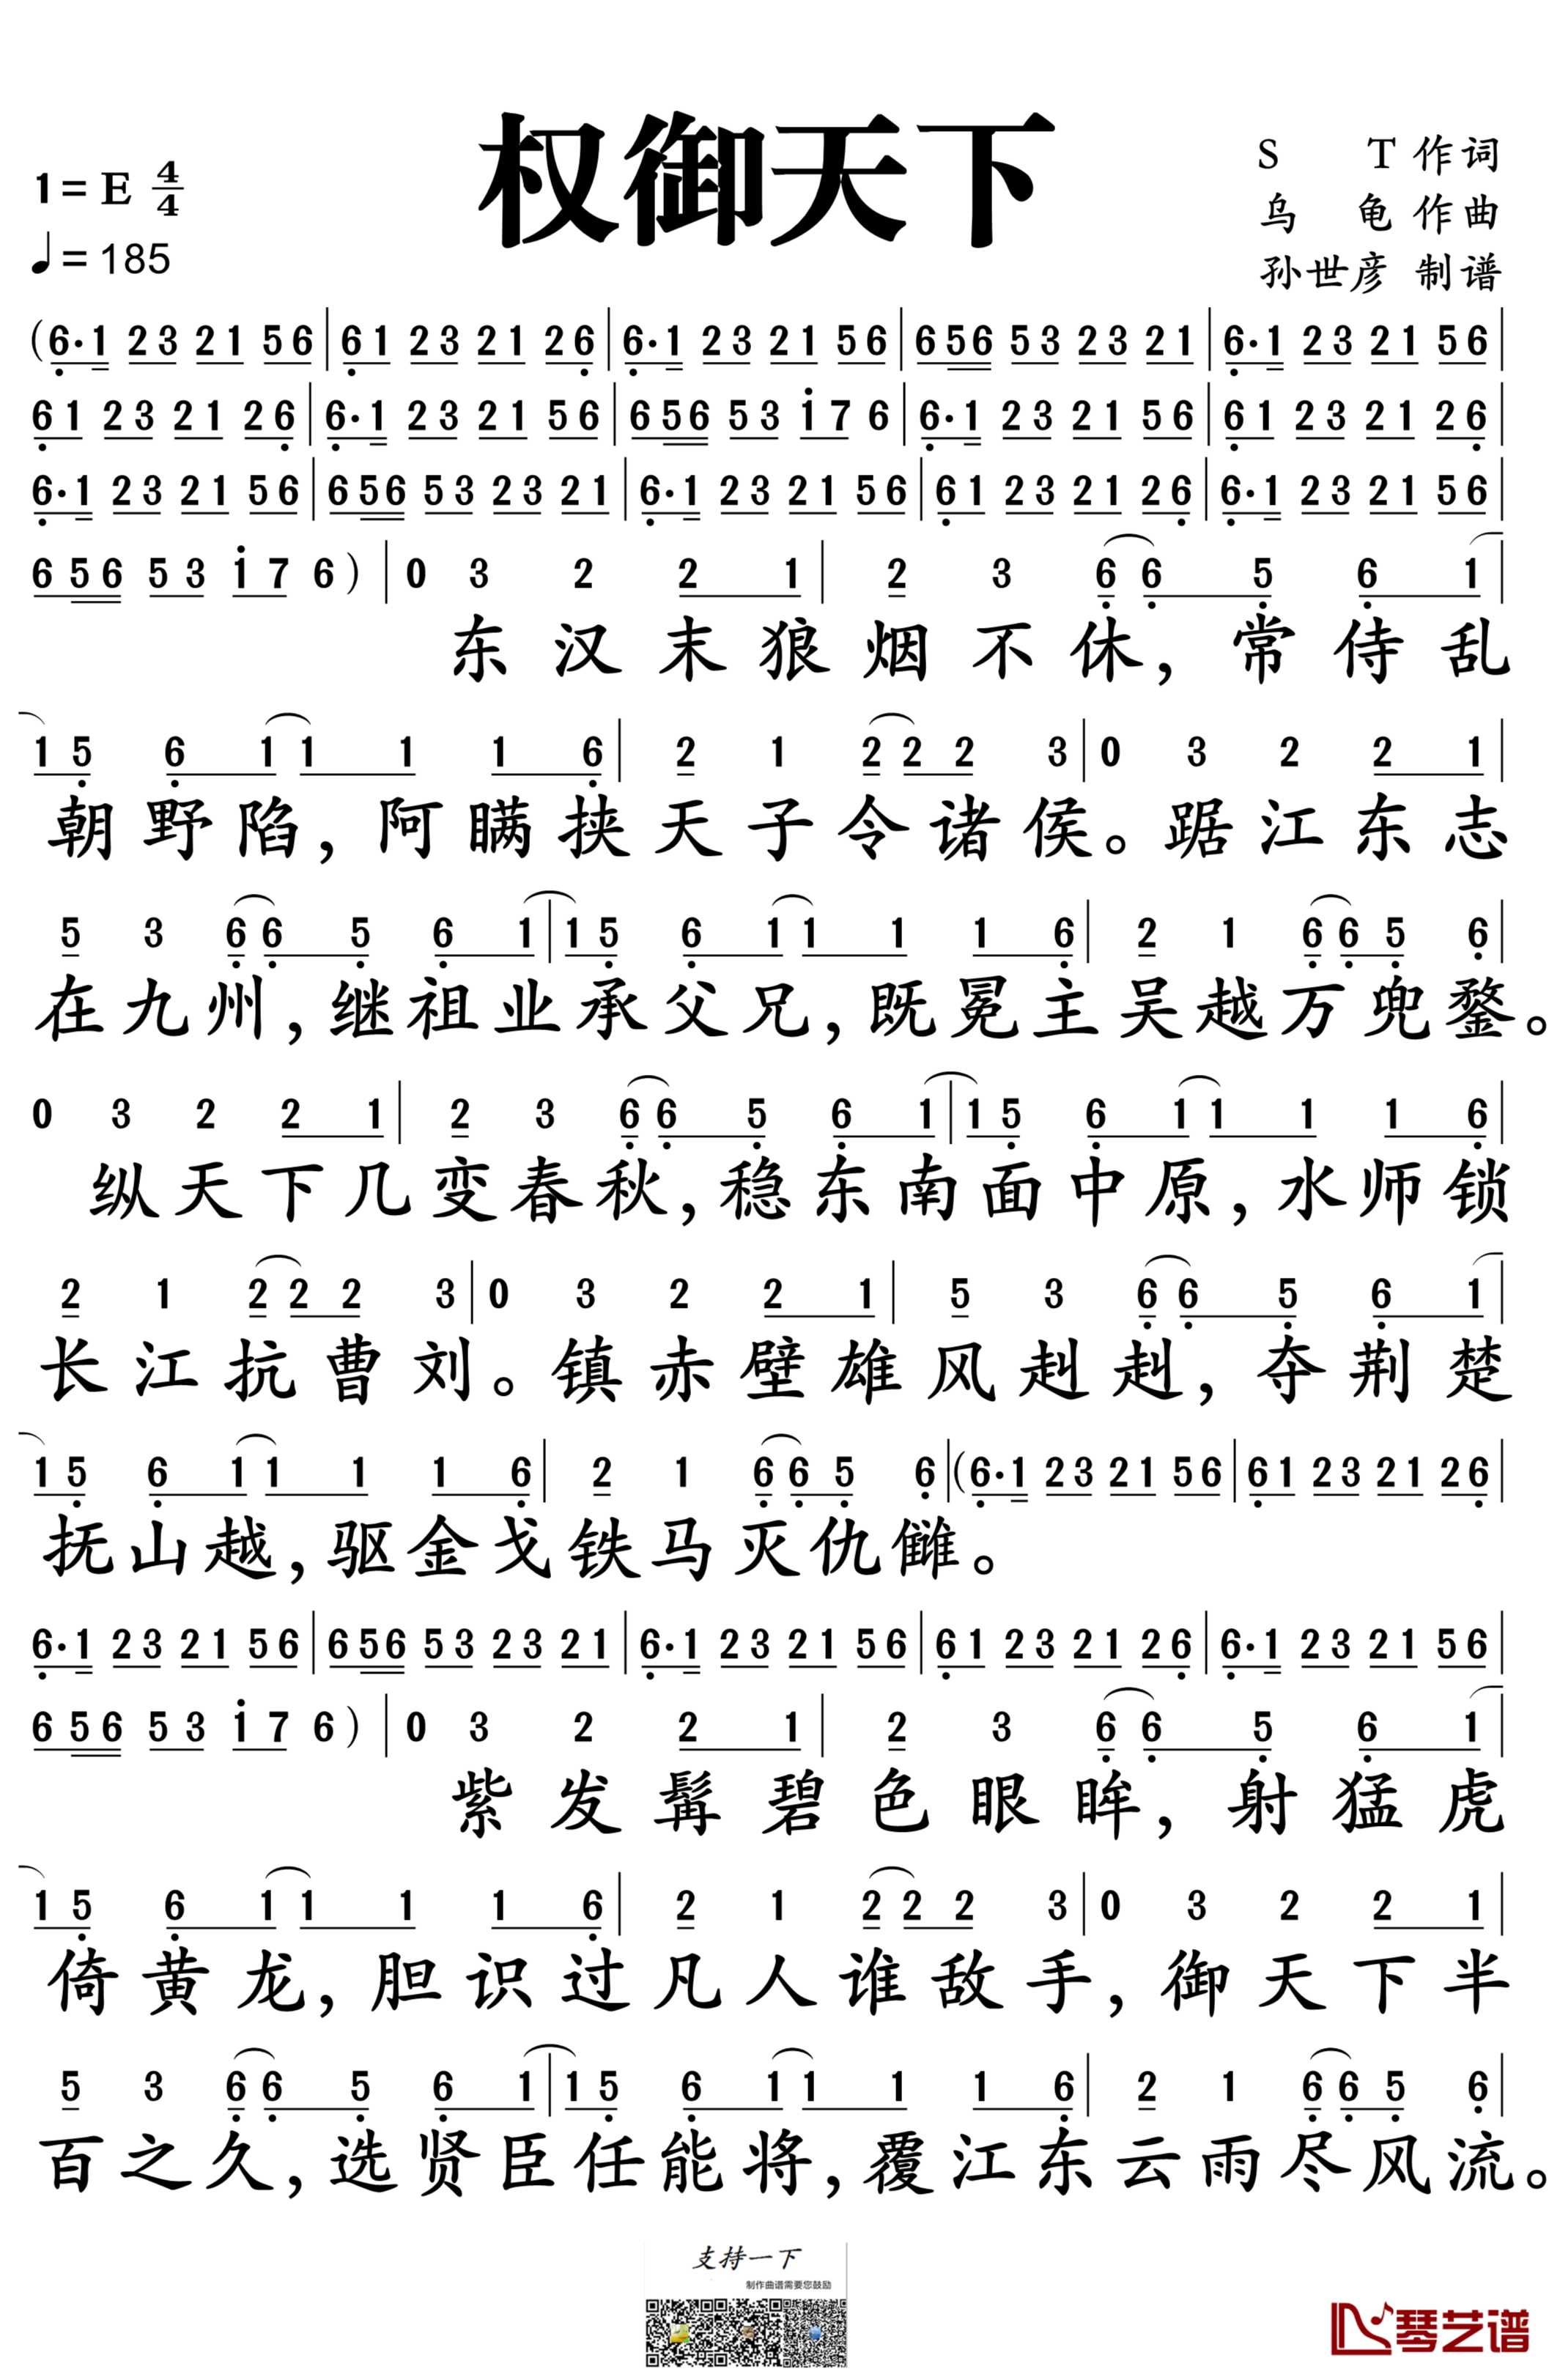 权御天下
1=E 4/4
♩=185
S T 作词
乌 龟 作曲
孙世彦 制谱
(6·1 23 21 56|61 23 21 26|6·1 23 21 56|656 53 23 21|6·1 23 21 56|
61 23 21 26|6·1 23 21 56|656 53 i7 6|6·1 23 21 56|61 23 21 26|
6·1 23 21 56|656 53 23 21|6·1 23 21 56|61 23 21 26|6·1 23 21 56|
656 53 i7 6)|0 3 2 2 1|2 3 66 5 6 1|
东汉末狼烟不休，常侍乱
15 6 11 1 1 6|2 1 22 2 3|0 3 2 2 1|
朝野陷，阿瞒挟天子令诸侯。踞江东志
5 3 66 5 6 1|15 6 11 1 1 6|2 1 66 5 6|
在九州，继祖业承父兄，既冕主吴越万兜鍪。
0 3 2 2 1|2 3 66 5 6 1|15 6 11 1 1 6|
纵天下几变春秋，稳东南面中原，水师锁
2 1 22 2 3|0 3 2 2 1|5 3 66 5 6 1|
长江抗曹刘。镇赤壁雄风赳赳，夺荆楚
15 6 11 1 1 6|2 1 66 5 6|(6·1 23 21 56|61 23 21 26|
抚山越，驱金戈铁马灭仇雠。
6·1 23 21 56|656 53 23 21|6·1 23 21 56|61 23 21 26|6·1 23 21 56|
656 53 i7 6)|0 3 2 2 1|2 3 66 5 6 1|
紫发髯碧色眼眸，射猛虎
15 6 11 1 1 6|2 1 22 2 3|0 3 2 2 1|
倚黄龙，胆识过凡人谁敌手，御天下半
5 3 66 5 6 1|15 6 11 1 1 6|2 1 66 5 6|
百之久，选贤臣任能将，覆江东云雨尽风流。
支持一下
制作曲谱需要您鼓励
琴艺谱